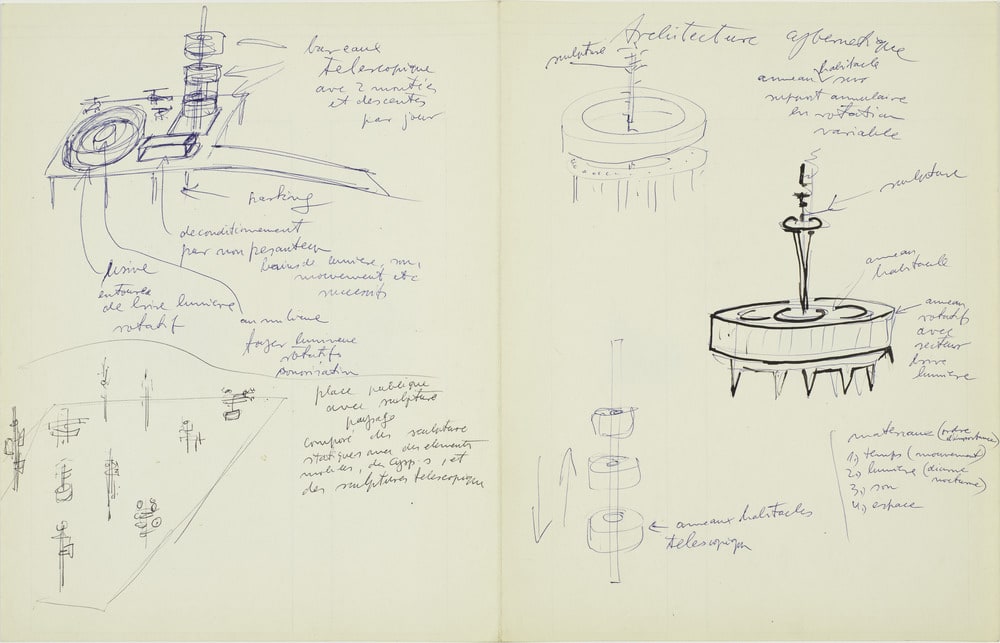 bureaux
telescopique
avec 2 montées
et descentes
par jour
parking
deconditionnement
par non pesanteur
bains de lumière, son,
mouvement, etc
successifs
entourée
de lumière
rotatif
au milieu
foyer lumineux
rotatifs
sonorisation
place publique
avec sculpture
paysage
composé des sculpture
statiques avec des elements
mobiles, des cysp.s, et
des sculptures telescopique
Architecture cybernetique
sculpture
anneau habitacle sur
suport annulaire
en rotation
variable
sculpture
anneau
habitacle
anneau
rotatif
avec
secteur
lumière
anneaux habitacles
telescopique
materiaux (ordre
d'importance)
1) temps (mouvement)
2) lumière (diurne
nocturne)
3) son
4) espace